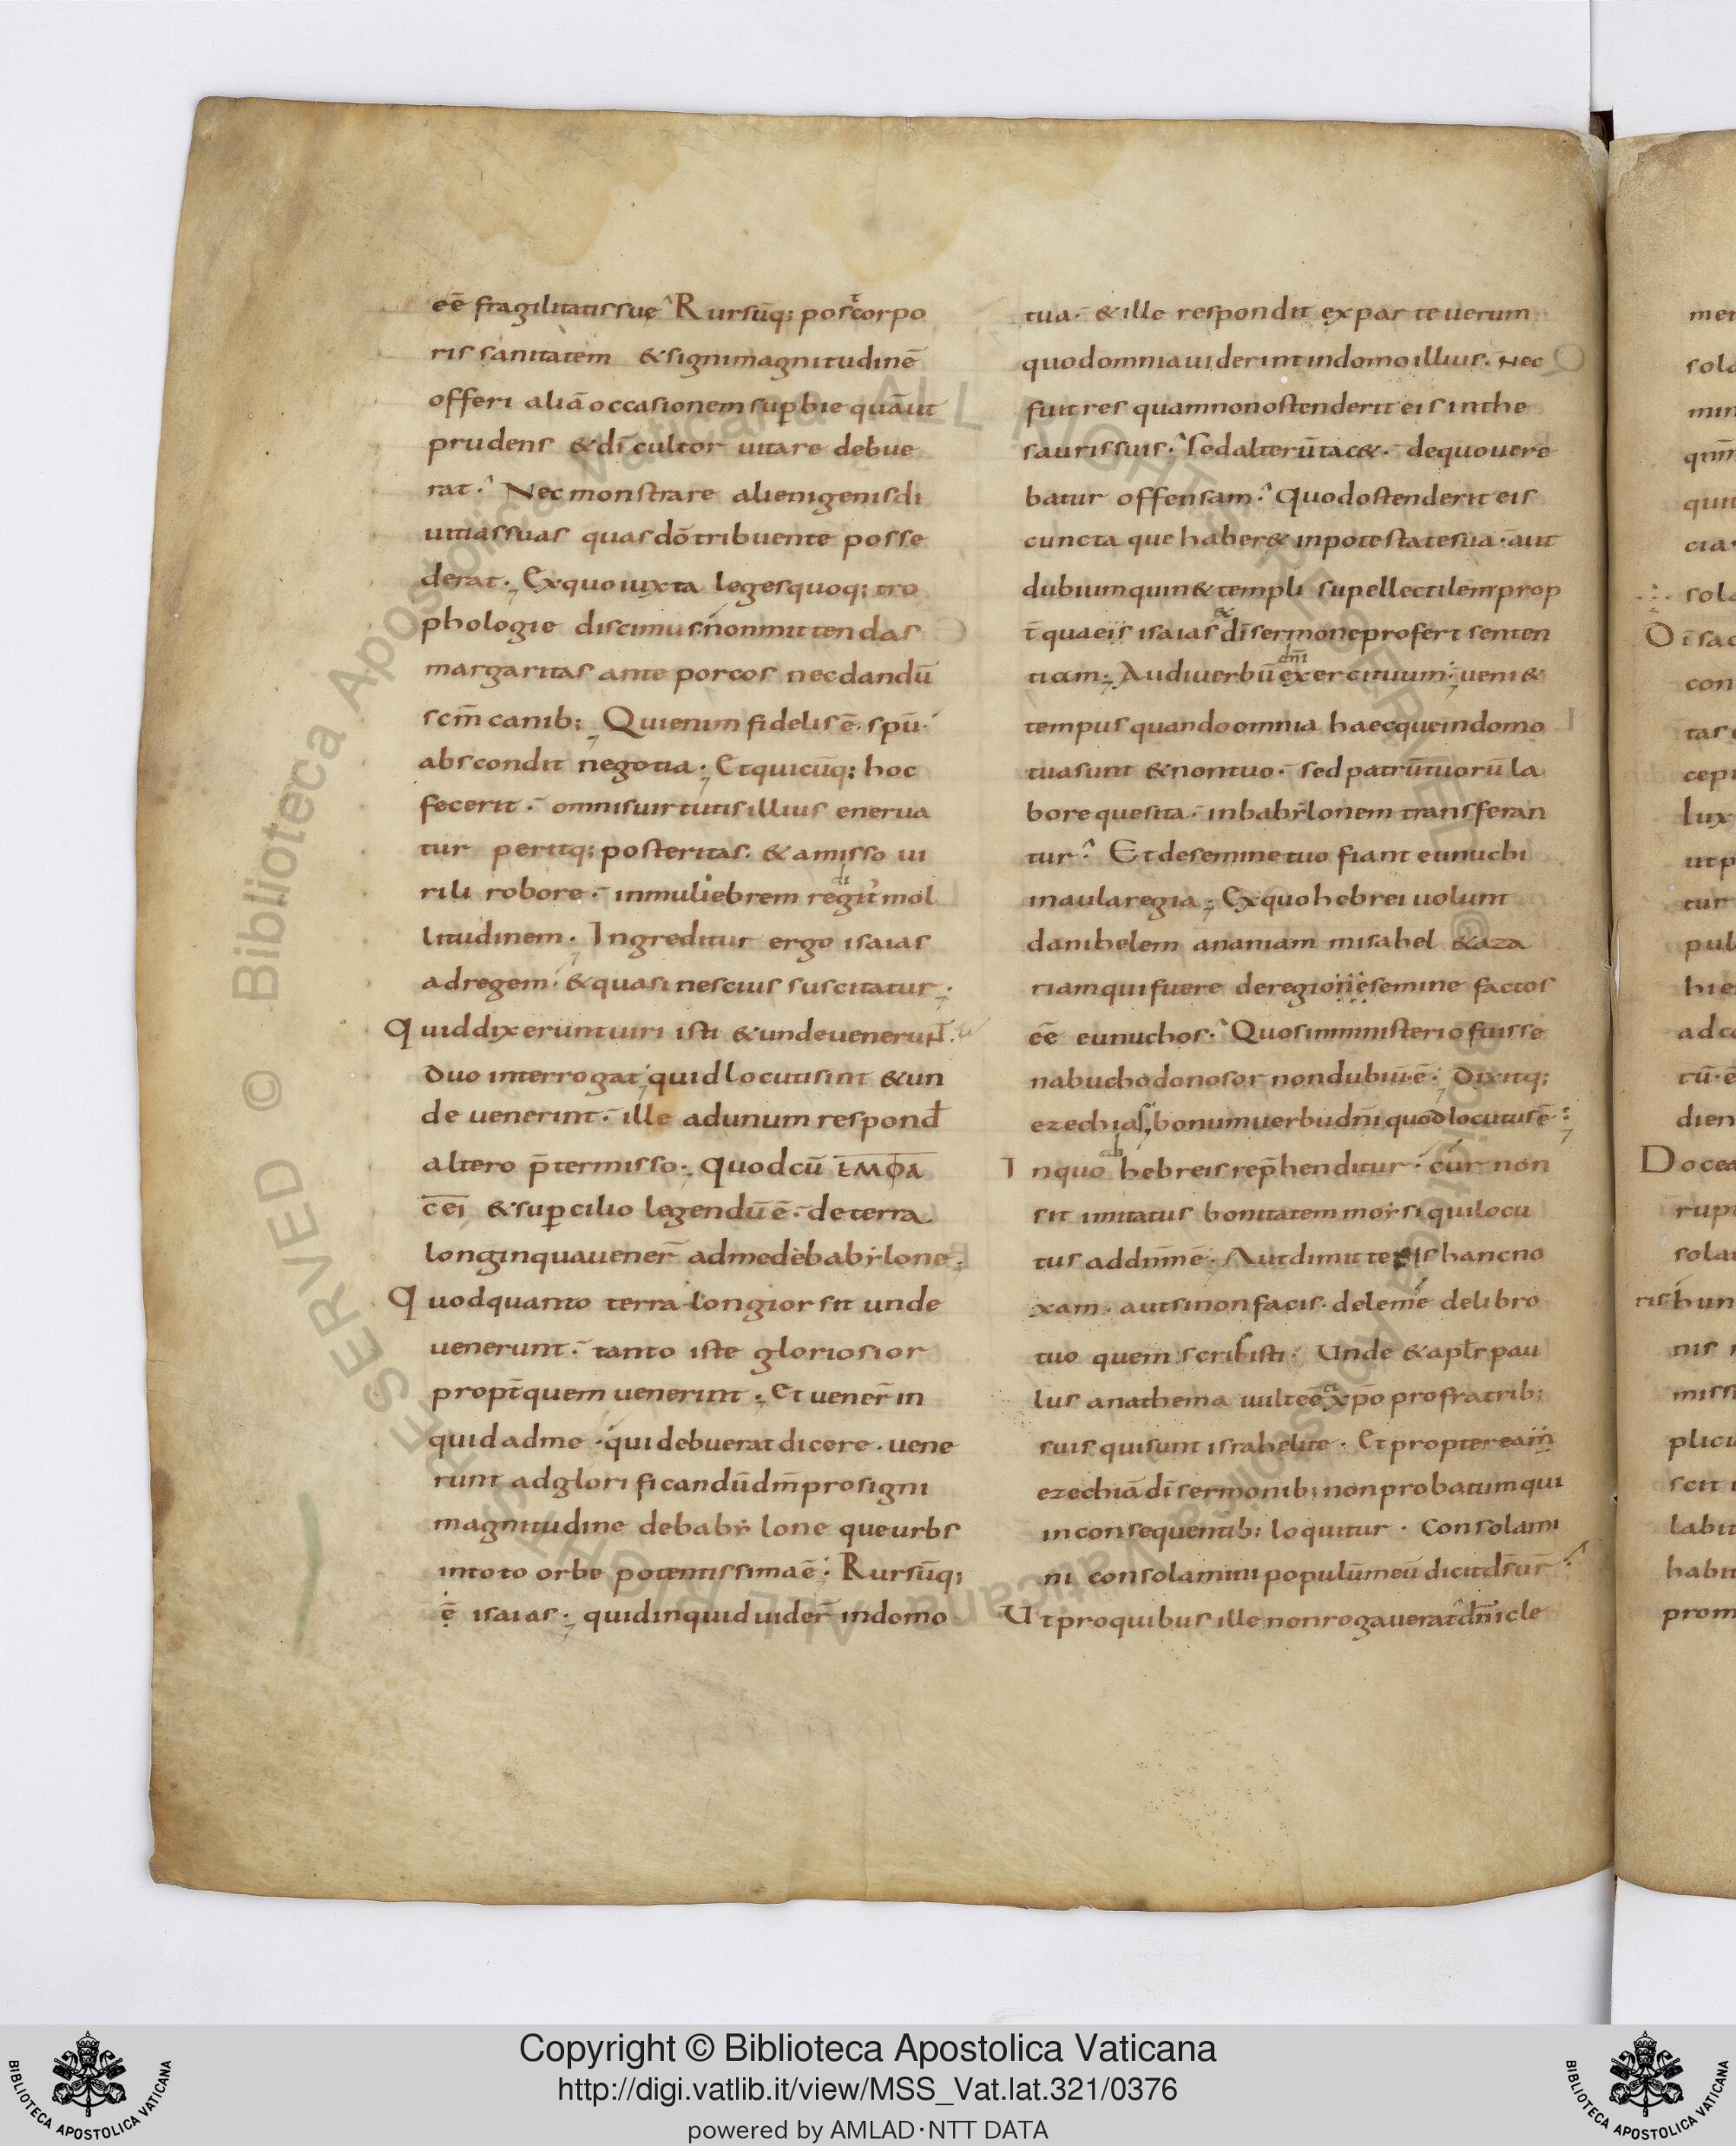 eē fragilitatissuę Rursūq; post corpo
ris sanitatem & signi magnitudinē
offeri aliā occasionem supbie quā ut
prudens & dī cultor uitare debue
rat. Nec monstrare alienigenis di
uitias suas quas dō tribuente posse
derat. Ex quo iuxta leges quoq; tro
phologie discimus non mittendas
margaritas ante porcos nec dandū
scm̄ canib; Qui enim fidelis ē spū
abscondit negotia. Et quicūq; hoc
fecerit. omnis uirtutis illius enerua
tur peritq; posteritas. & amisso ui
rili robore. in muliebrem mol
litudinem. Ingreditur ergo isaias
ad regem. & quasi nescius suscitatur.
Quid dixerunt uiri isti & unde uenerunt
duo interrogat quid locuti sint & un
de uenerint. ille ad unum respond
altero p̄termisso. Quod cū ΕΜΦΑ
CEI & supcilio legendū ē. de terra
longinqua uener̄ ad me de babẏlone.
Quod quanto terra longior sit unde
uenerunt. tanto iste gloriosior
propt̄ quem uenerint. Et uener̄ in
quid ad me. qui debuerat dicere. uene
runt ad glorificandū dm̄ pro signi
magnitudine de babẏlone que urbs
in toto orbe potentissima ē. Rursūq;
ē isaias. quid inquid uider̄ in domo
tua. & ille respondit ex parte uerum
quod omnia uiderint in domo illius. Nec
fuit res quam non ostenderit eis in the
sauris suis. Sed alterū tac&. de quo uere
batur offensam. Quod ostenderit eis
cuncta que haber& in potestate sua. aut
dubium quin & templi supellectilem prop
t̄ quae iis isaias ex dī sermone profert senten
tiam. Audi uerbū dn̄i exercituum. ueni&
tempus quando omnia haec que in domo
tua sunt & non tuo. sed patrū tuorū la
bore quesita. in babẏlonem transferan
tur. Et de semine tuo fiant eunuchi
in aula regia. Ex quo hebrei uolunt
danihelem ananiam misahel & aza
riam qui fuere de regio semine factos
eē eunuchos. Quos in ministerio fuisse
nabuchodonosor non dubiū ē. Dixitq;
ezechias, bonum uerbū dn̄i quod locutus ē.
In quo ab hebreis rep̄henditur. cur non
sit imitatus bonitatem moẏsi qui locu
tus ad dnm̄ ē. Aut dimitte eis hanc no
xam. aut si non facis. dele me de libro
tuo quem scripsisti. Unde & apl̄s pau
lus anathema uult eē a xp̄o pro fratrib;
suis qui sunt israhelite. Et propterea
ezechiā dī sermonib; non probatum qui
in consequentib; loquitur. Consolami
ni consolamini populū meū dicit ds̄ ur̄
Ut pro quibus ille non rogauerat dn̄i cle
Copyright © Biblioteca Apostolica Vaticana
http://digi.vatlib.it/view/MSS_Vat.lat.321/0376
powered by AMLAD·NTT DATA
BIBLIOTECA APOSTOLICA VATICANA
BIBLIOTECA APOSTOLICA VATICANA